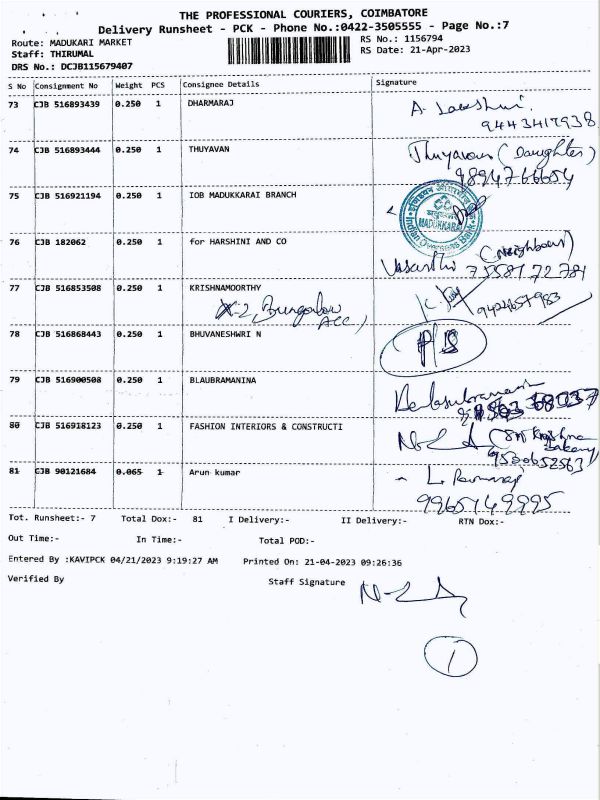 THE PROFESSIONAL COURIERS, COIMBATORE
Delivery Runsheet - PCK - Phone No.:0422-3505555 - Page No.:7
Route: MADUKARI MARKET RS No.: 1156794
Staff: THIRUMAL RS Date: 21-Apr-2023
DRS No.: DCJB115679407
S No Consignment No Weight PCS Consignee Details Signature
73 CJB 516893439 0.250 1 DHARMARAJ A. Lakshmi.
9443417938
74 CJB 516893444 0.250 1 THUYAVAN Thuyavan (Daughter)
9894766654
75 CJB 516921194 0.250 1 IOB MADUKKARAI BRANCH
MADUKKARAI
Indian Overseas Bank
76 CJB 182062 0.250 1 for HARSHINI AND CO (Neighbour)
Vasanthi 7558172781
77 CJB 516853508 0.250 1 KRISHNAMOORTHY
X-2, Bungalow
ACC)
78 CJB 516868443 0.250 1 BHUVANESHWRI N
79 CJB 516900508 0.250 1 BLAUBRAMANINA
80 CJB 516918123 0.250 1 FASHION INTERIORS & CONSTRUCTI (Sri Krishna
Bakery)
9530652563
81 CJB 90121684 0.065 1 Arun kumar
9965149995
Tot. Runsheet:- 7 Total Dox:- 81 I Delivery:- II Delivery:- RTN Dox:-
Out Time:- In Time:- Total POD:-
Entered By :KAVIPCK 04/21/2023 9:19:27 AM Printed On: 21-04-2023 09:26:36
Verified By Staff Signature
1